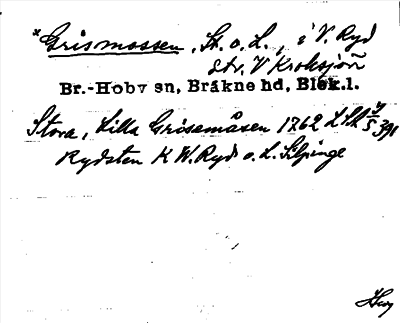 *Grismossen, St. o. L., i V. Ryd
str. V Kroksjön
Br.-Hoby sn, Bräkne hd, Blek.l.
Stora, Lilla Grisemåsen 1762 LSA
Rydsten K W. Ryd o. L. Silpinge